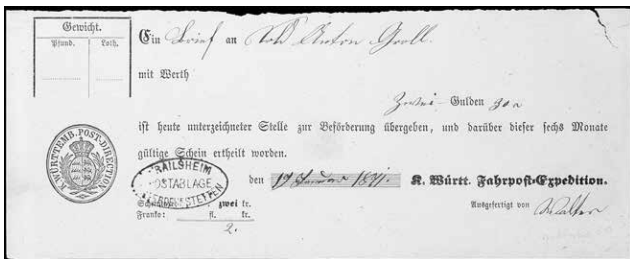 Gewicht.
Pfund. Loth.
Ein Brief an Sold Anton Groll.
mit Werth
Zwei - Gulden 30 x
ist heute unterzeichneter Stelle zur Beförderung übergeben, und darüber dieser sechs Monate
gültige Schein ertheilt worden.
K. WÜRTTEMB. POST-DIRECTION
CRAILSHEIM
POSTABLAGE
den 19 Januar 1871. K. Württ. Fahrpost-Expedition.
zwei kr.
Franko: fl. kr.
2.
Ausgefertigt von Walter